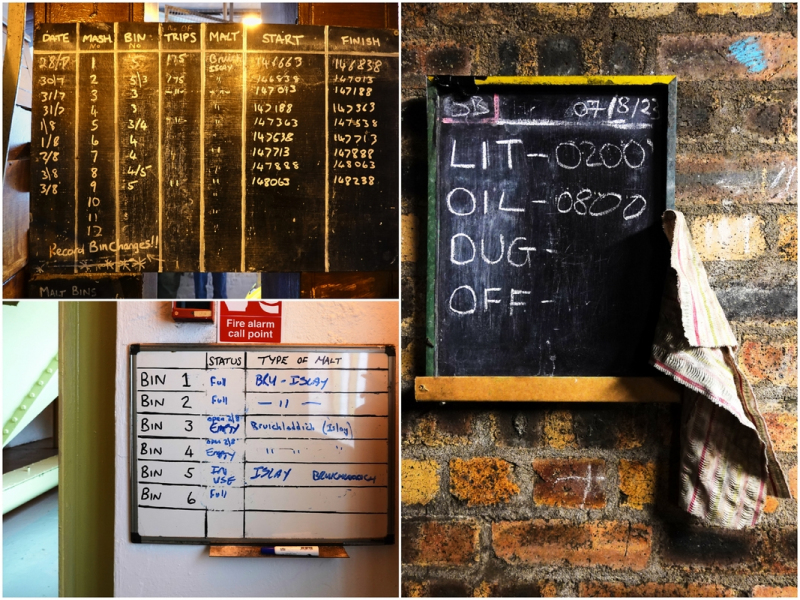 DATE MASH No BIN No TRIPS MALT START FINISH
28/7 1 5 175 Bruich Islay 146663 146838
30/7 2 5/3 175 " 146838 147013
31/7 3 3 " " 147013 147188
31/7 4 3 " 147188 147363
1/8 5 3/4 " 147363 147538
1/8 6 4 " 147538 147713
2/8 7 4 " 147713 147888
3/8 8 4/5 " 147888 148063
3/8 9 5 " " 148063 148238
10
11
12
Record Bin Changes!!
MALT BINS
Fire alarm
call point
STATUS TYPE OF MALT
BIN 1 Full BRU - ISLAY
BIN 2 Full — " —
BIN 3 open 2/8 EMPTY Bruichladdich (Islay)
BIN 4 open 2/8 EMPTY " "
BIN 5 IN USE ISLAY BRUICHLADDICH
BIN 6 Full
SB 07/8/2
LIT - 0200
OIL - 0800
DUG -
OFF -